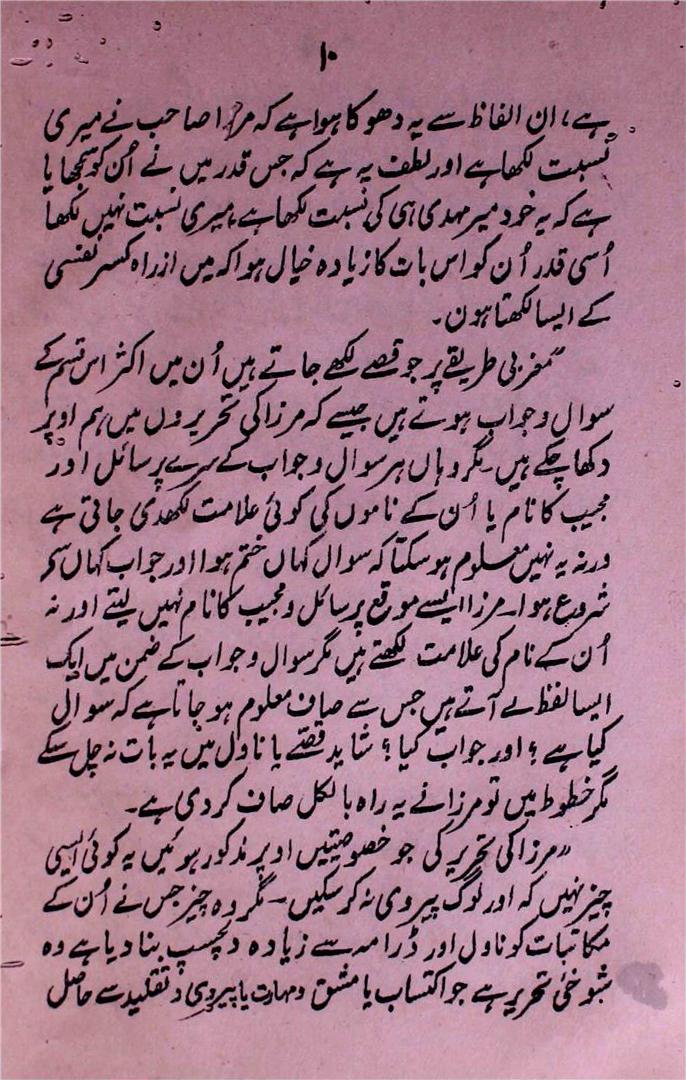 ۱۰
ہے، ان الفاظ سے یہ دھوکا ہوا ہے کہ مرزا صاحب نے میری
نسبت لکھا ہے اور لطف یہ ہے کہ جس قدر میں نے اُن کو سمجھا یا
ہے کہ یہ خود میر مہدی ہی کی نسبت لکھا ہے میری نسبت نہیں لکھا
اُسی قدر اُن کو اس بات کا زیادہ خیال ہوا کہ میں از راہ کسر نفسی
کے ایسا لکھتا ہون۔
"مغربی طریقے پر جو قصے لکھے جاتے ہیں اُن میں اکثر اس قسم کے
سوال و جواب ہوتے ہیں جیسے کہ مرزا کی تحریروں میں ہم اوپر
دکھا چکے ہیں۔ مگر وہاں ہر سوال و جواب کے سرے پر سائل اور
مجیب کا نام یا اُن کے ناموں کی کوئی علامت لکھدی جاتی ہے
ورنہ یہ نہیں معلوم ہو سکتا کہ سوال کہاں ختم ہوا اور جواب کہاں سے
شروع ہوا۔ مرزا ایسے موقع پر سائل و مجیب کا نام نہیں لیتے اور نہ
اُن کے نام کی علامت لکھتے ہیں مگر سوال و جواب کے ضمن میں ایک
ایسا لفظ لے آتے ہیں جس سے صاف معلوم ہو جاتا ہے کہ سوال
کیا ہے؟ اور جواب کیا؟ شاید قصّے یا ناول میں یہ بات نہ چل سکے
مگر خطوط میں تو مرزا نے یہ راہ بالکل صاف کر دی ہے۔
"مرزا کی تحریر کی جو خصوصیتیں اوپر مذکور ہوئیں یہ کوئی ایسی
چیز نہیں کہ اور لوگ پیروی نہ کر سکیں۔ مگر وہ چیز جس نے اُن کے
مکاتبات کو ناول اور ڈرامہ سے زیادہ دلچسپ بنا دیا ہے وہ
شوخیٔ تحریر ہے جو اکتساب یا مشق و مہارت یا پیروی و تقلید سے حاصل